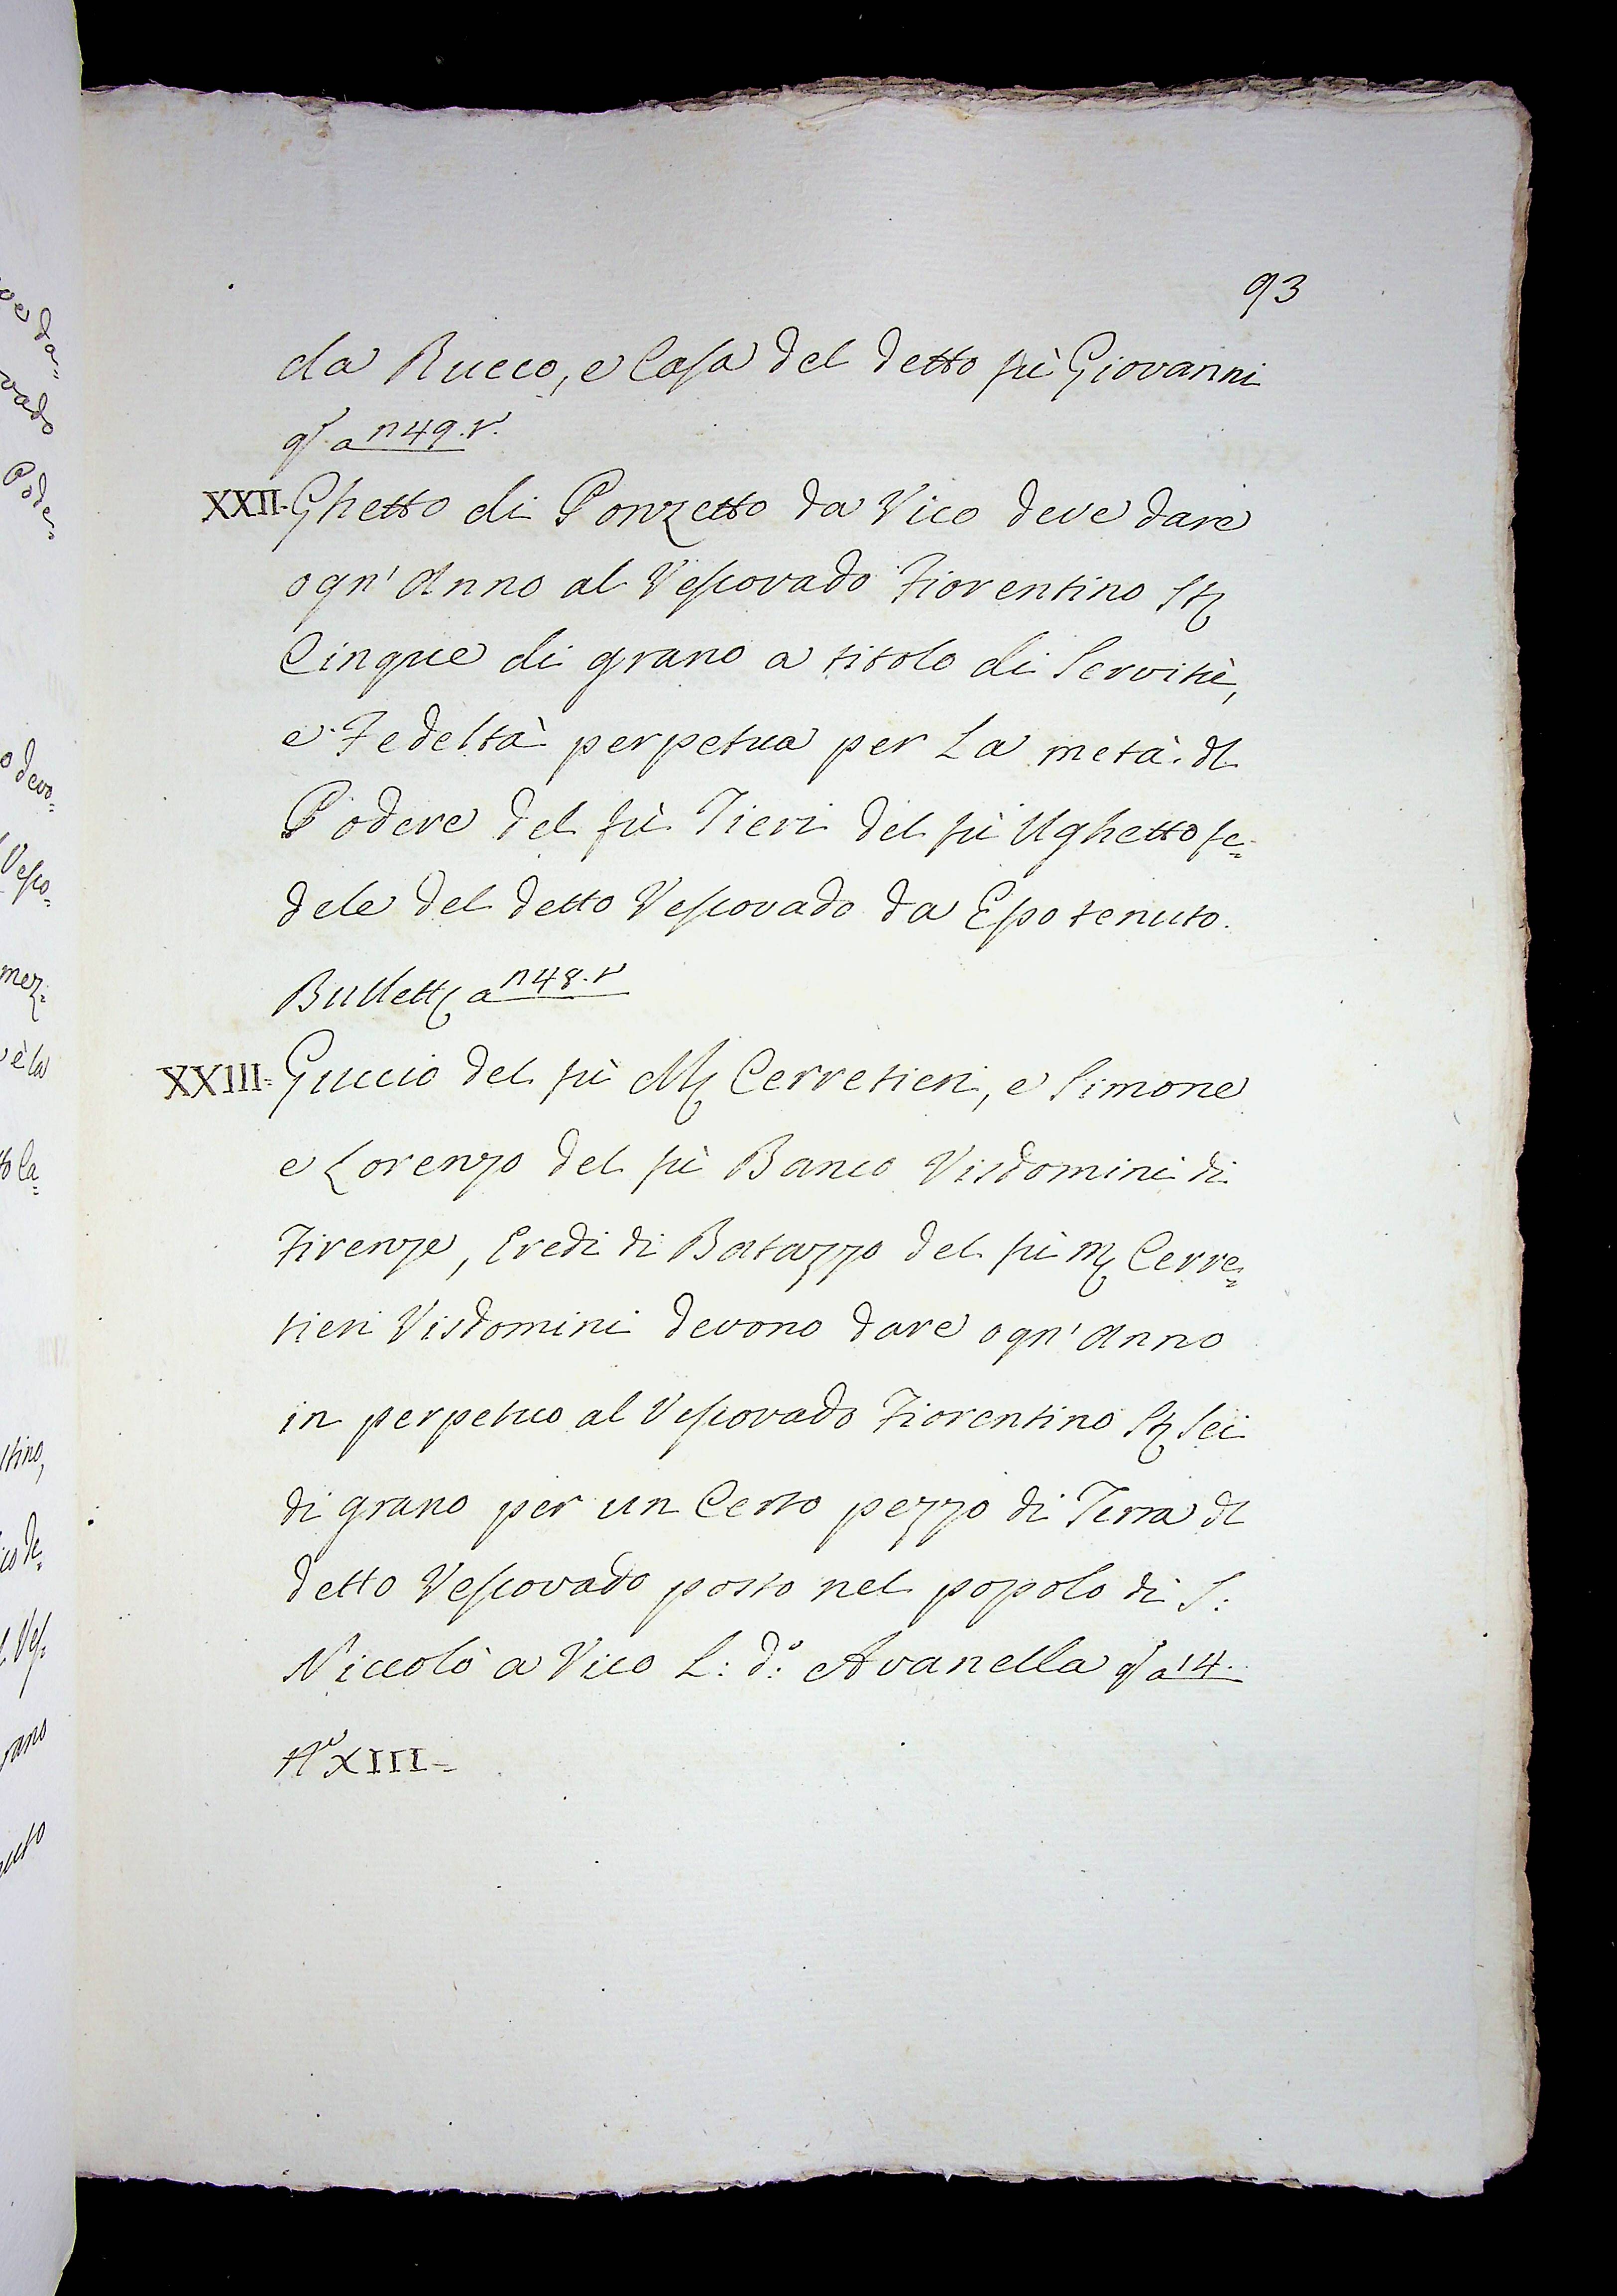 93
da Rucco, e Casa del detto fù Giovanni
a n 49. v.
XXII. Ghetto di Ponzetto da Vico deve dare
ogn' Anno al Vescovado Fiorentino St
Cinque di grano a titolo di Servitù,
e Fedeltà perpetua per La metà dl
Podere del fù Tieri del fù Ughetto fe=
dele del detto Vescovado da Esso tenuto.
Bullett a n 48. v
XXIII= Guccio del fù M Cerretieri, e Simone
e Lorenzo del fù Banco Visdomini di
Firenze, Eredi di Batazzo del fù M Cerre=
tieri Visdomini devono dare ogn' Anno
in perpetuo al Vescovado Fiorentino St Sei
di grano per un Certo pezzo di Terra dl
detto Vescovado posto nel popolo di S:
Niccolò a Vico L: d:º Avanella a 14.
Nº XIII=